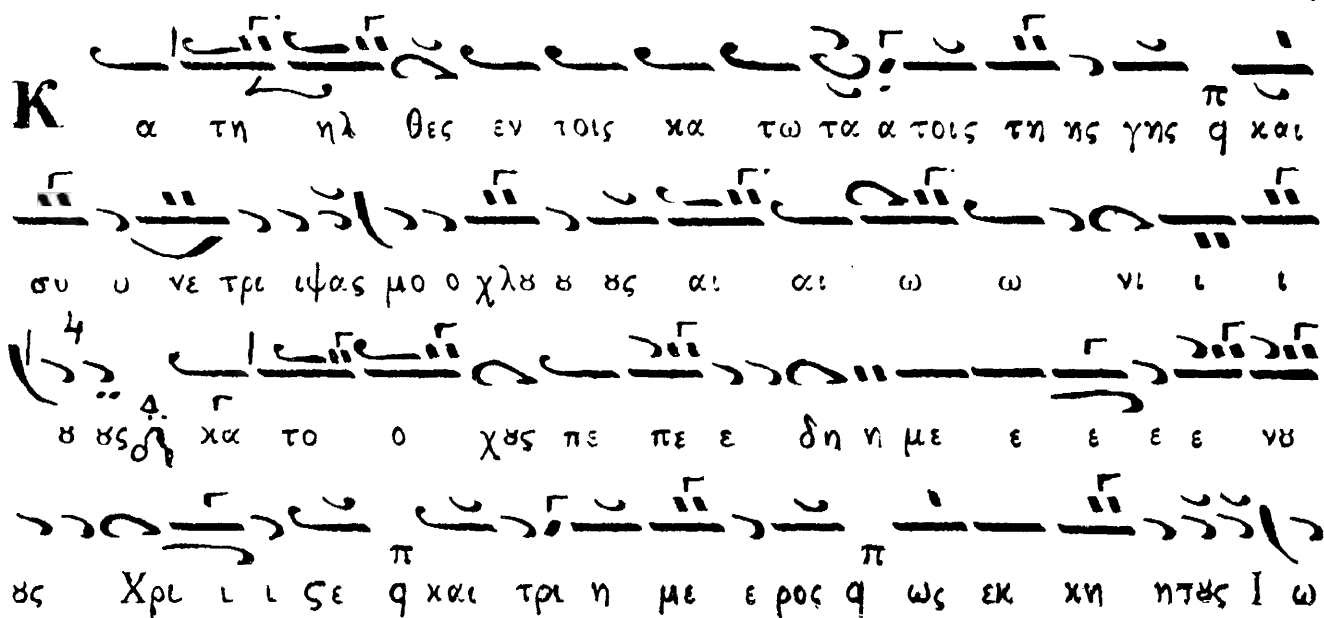 Κ α τη ηλ θες εν τοις κα τω τα α τοις τη ης γης π q και
συ υ νε τρι ιψας μο ο χλȣ ȣ ȣς αι αι ω ω νι ι ι
ȣ ȣς Δ κα το ο χȣς πε πε ε δη η με ε ε ε ε νȣ
ȣς Χρι ι ι ςε π q και τρι η με ε ρος π q ως εκ κη ητȣς Ι ω